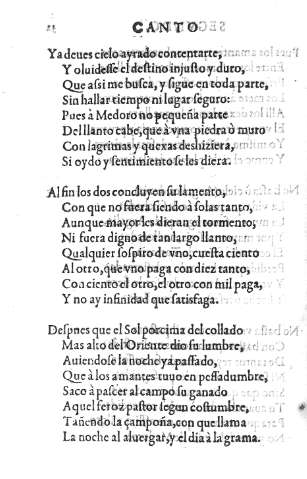 CANTO
Ya deues cielo ayrado contentarte,
Y oluidesse el destino injusto y duro,
Que assi me busca, y sigue en toda parte,
Sin hallar tiempo ni lugar seguro:
Pues à Medoro no pequeña parte
Del llanto cabe, que à vna piedra ò muro
Con lagrimas y quexas deshiziera,
Si oydo y sentimiento se les diera.
Al fin los dos concluyen su lamento,
Con que no fuera siendo à solas tanto,
Aunque mayor les dieran el tormento,
Ni fuera digno de tan largo llanto,
Qualquier sospiro de vno, cuesta ciento
Al otro, que vno paga con diez tanto,
Con ciento el otro, el otro con mil paga,
Y no ay infinidad que satisfaga.
Despues que el Sol porcima del collado
Mas alto del Oriente dio su lumbre,
Auiendose la noche ya passado,
Que à los amantes tuuo en pessadumbre,
Saco à pascer al campo su ganado
Aquel feroz pastor segun costumbre,
Tañendo la çampoña, con que llama
La noche al aluergar, y el dia à la grama.